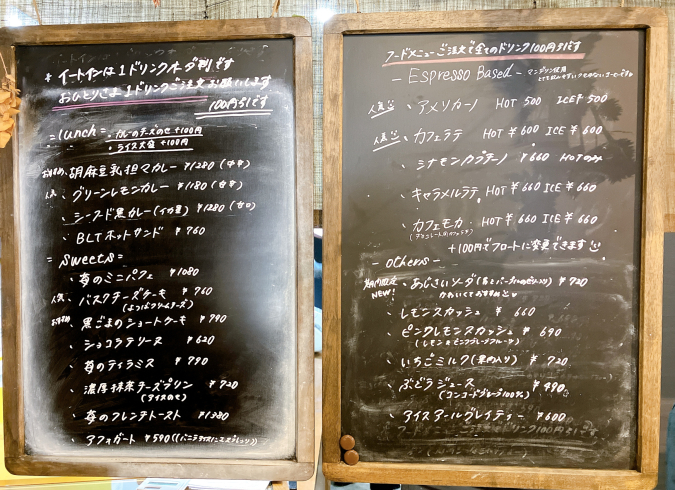 * イートインは1ドリンクオーダー制です
おひとりさま1ドリンクご注文お願いします
100円引です
= lunch = ・カレーのチーズのせ +100円
・ライス大盛 +100円
おすすめ、胡麻豆乳担々カレー ¥1280 (中辛)
人気、グリーンレモンカレー ¥1180 (中辛)
、シーフード黒カレー(イカ墨) ¥1280 (甘口)
、BLTホットサンド ¥760
= sweets =
、苺のミニパフェ ¥1080
人気、バスクチーズケーキ ¥760
(よつばクリームチーズ)
おすすめ 、黒ごまのショートケーキ ¥790
、ショコラテリーヌ ¥620
、苺のティラミス ¥790
、濃厚抹茶チーズプリン ¥720
(アイスのせ)
、苺のフレンチトースト ¥1380
、アフォガート ¥590
フードメニューご注文で全てのドリンク100円引です
- Espresso Based - マンデリン使用
人気 、アメリカーノ HOT 500 ICE ¥500
人気 、カフェラテ HOT ¥600 ICE ¥600
、シナモンカプチーノ ¥660 HOTのみ
、キャラメルラテ HOT ¥660 ICE ¥660
、カフェモカ HOT ¥660 ICE ¥660
+100円でフロートに変更できます
- Others -
期間限定 NEW! 、あじさいソーダ ¥720
かわいくておすすめ
、レモンスカッシュ ¥660
、ピンクレモンスカッシュ ¥690
(レモン&ピンクグレープフルーツ)
、いちごミルク(果肉入り) ¥720
、ぶどうジュース ¥490
(コンコードグレープ100%)
、アイスアールグレイティー ¥600